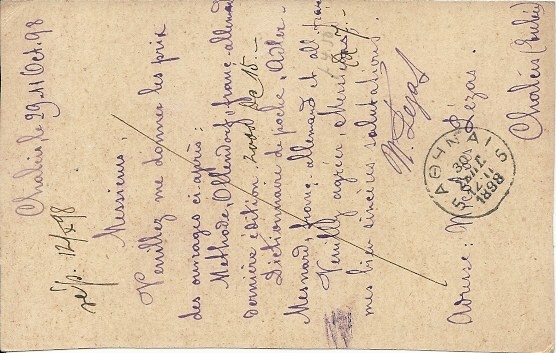 Chalcis, le 29/11 Oct. 98
rép. 12/X 98
Messieurs,
Veuillez me donner les prix
des ouvrages ci-après:
Méthode, Ollendorf, franç-allemand
dernière édition
Dictionnaire de poche, Adler-
Mesnard, franç-allemand et all.-franç
Veuillez agréer, Messieurs,
mes bien sincères salutations
N. Pézas
Adresse: N Pézas.
Chalcis (Eubée)
ΑΘΗΝΑΙ 5
30
12
1898